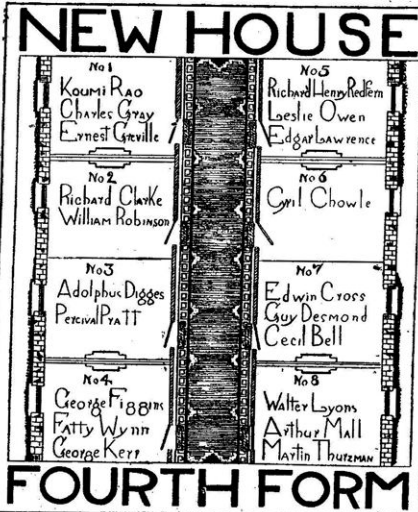 NEW HOUSE
No 1
Koumi Rao
Charles Gray
Ernest Greville
No 2
Richard Clarke
William Robinson
No 3
Adolphus Digges
Percival Pyatt
No 4
George Figgins
Fatty Wynn
George Kerr
No 5
Richard Henry Redfern
Leslie Owen
Edgar Lawrence
No 6
Cyril Chowle
No 7
Edwin Cross
Guy Desmond
Cecil Bell
No 8
Walter Lyons
Arthur Mall
Martin Thutzman
FOURTH FORM